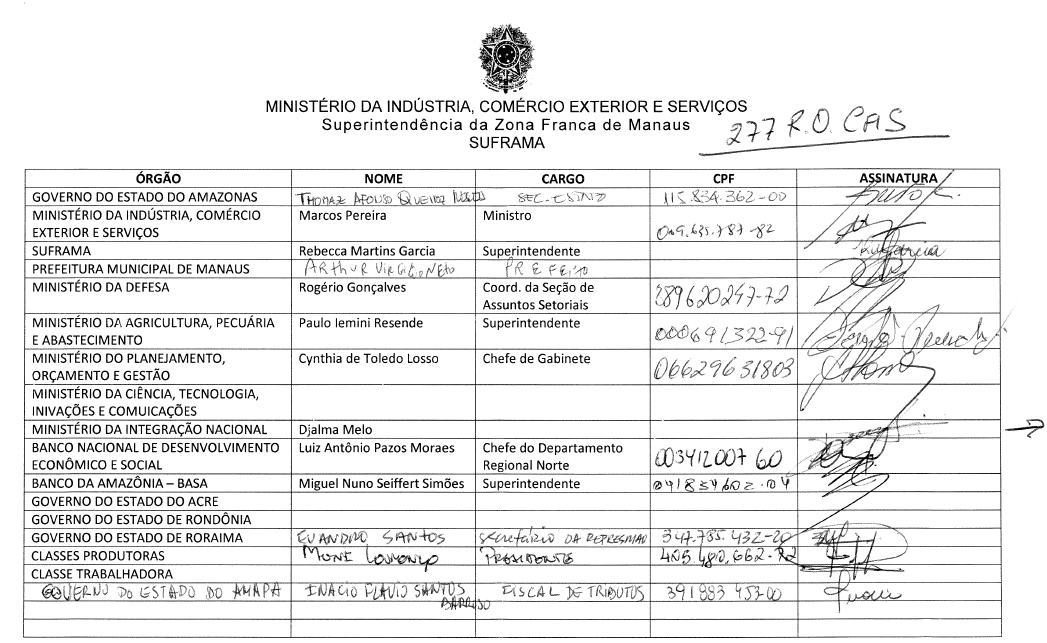 MINISTÉRIO DA INDÚSTRIA, COMÉRCIO EXTERIOR E SERVIÇOS
Superintendência da Zona Franca de Manaus
SUFRAMA
277 R.O. CAS
ÓRGÃO NOME CARGO CPF ASSINATURA
GOVERNO DO ESTADO DO AMAZONAS THOMAZ AFONSO QUEIROZ SEC. 115.834.362-00
MINISTÉRIO DA INDÚSTRIA, COMÉRCIO Marcos Pereira Ministro
EXTERIOR E SERVIÇOS 069.635.787-82
SUFRAMA Rebecca Martins Garcia Superintendente
PREFEITURA MUNICIPAL DE MANAUS ARTHUR VIRGILIO NETO PREFEITO
MINISTÉRIO DA DEFESA Rogério Gonçalves Coord. da Seção de 289620247-72
Assuntos Setoriais
MINISTÉRIO DA AGRICULTURA, PECUÁRIA Paulo Iemini Resende Superintendente 000691322-91
E ABASTECIMENTO
MINISTÉRIO DO PLANEJAMENTO, Cynthia de Toledo Losso Chefe de Gabinete 06629631803
ORÇAMENTO E GESTÃO
MINISTÉRIO DA CIÊNCIA, TECNOLOGIA,
INIVAÇÕES E COMUICAÇÕES
MINISTÉRIO DA INTEGRAÇÃO NACIONAL Djalma Melo
BANCO NACIONAL DE DESENVOLVIMENTO Luiz Antônio Pazos Moraes Chefe do Departamento 00341200760
ECONÔMICO E SOCIAL Regional Norte
BANCO DA AMAZÔNIA – BASA Miguel Nuno Seiffert Simões Superintendente 041834602-04
GOVERNO DO ESTADO DO ACRE
GOVERNO DO ESTADO DE RONDÔNIA
GOVERNO DO ESTADO DE RORAIMA EVANDRO SANTOS Secretário DA 347.785.432-20
CLASSES PRODUTORAS MUNI LOURENÇO PRESIDENTE 405.480.662-72
CLASSE TRABALHADORA
GOVERNO DO ESTADO DO AMAPA INACIO FLAVIO SANTOS FISCAL DE TRIBUTOS 391883453-00
BARROSO